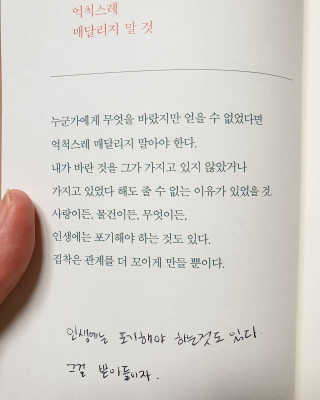 억척스레
매달리지 말 것
누군가에게 무엇을 바랐지만 얻을 수 없었다면
억척스레 매달리지 말아야 한다.
내가 바란 것을 그가 가지고 있지 않았거나
가지고 있었다 해도 줄 수 없는 이유가 있었을 것.
사랑이든, 물건이든, 무엇이든,
인생에는 포기해야 하는 것도 있다.
집착은 관계를 더 꼬이게 만들 뿐이다.
인생에는 포기해야 하는것도 있다.
그걸 받아들이자.